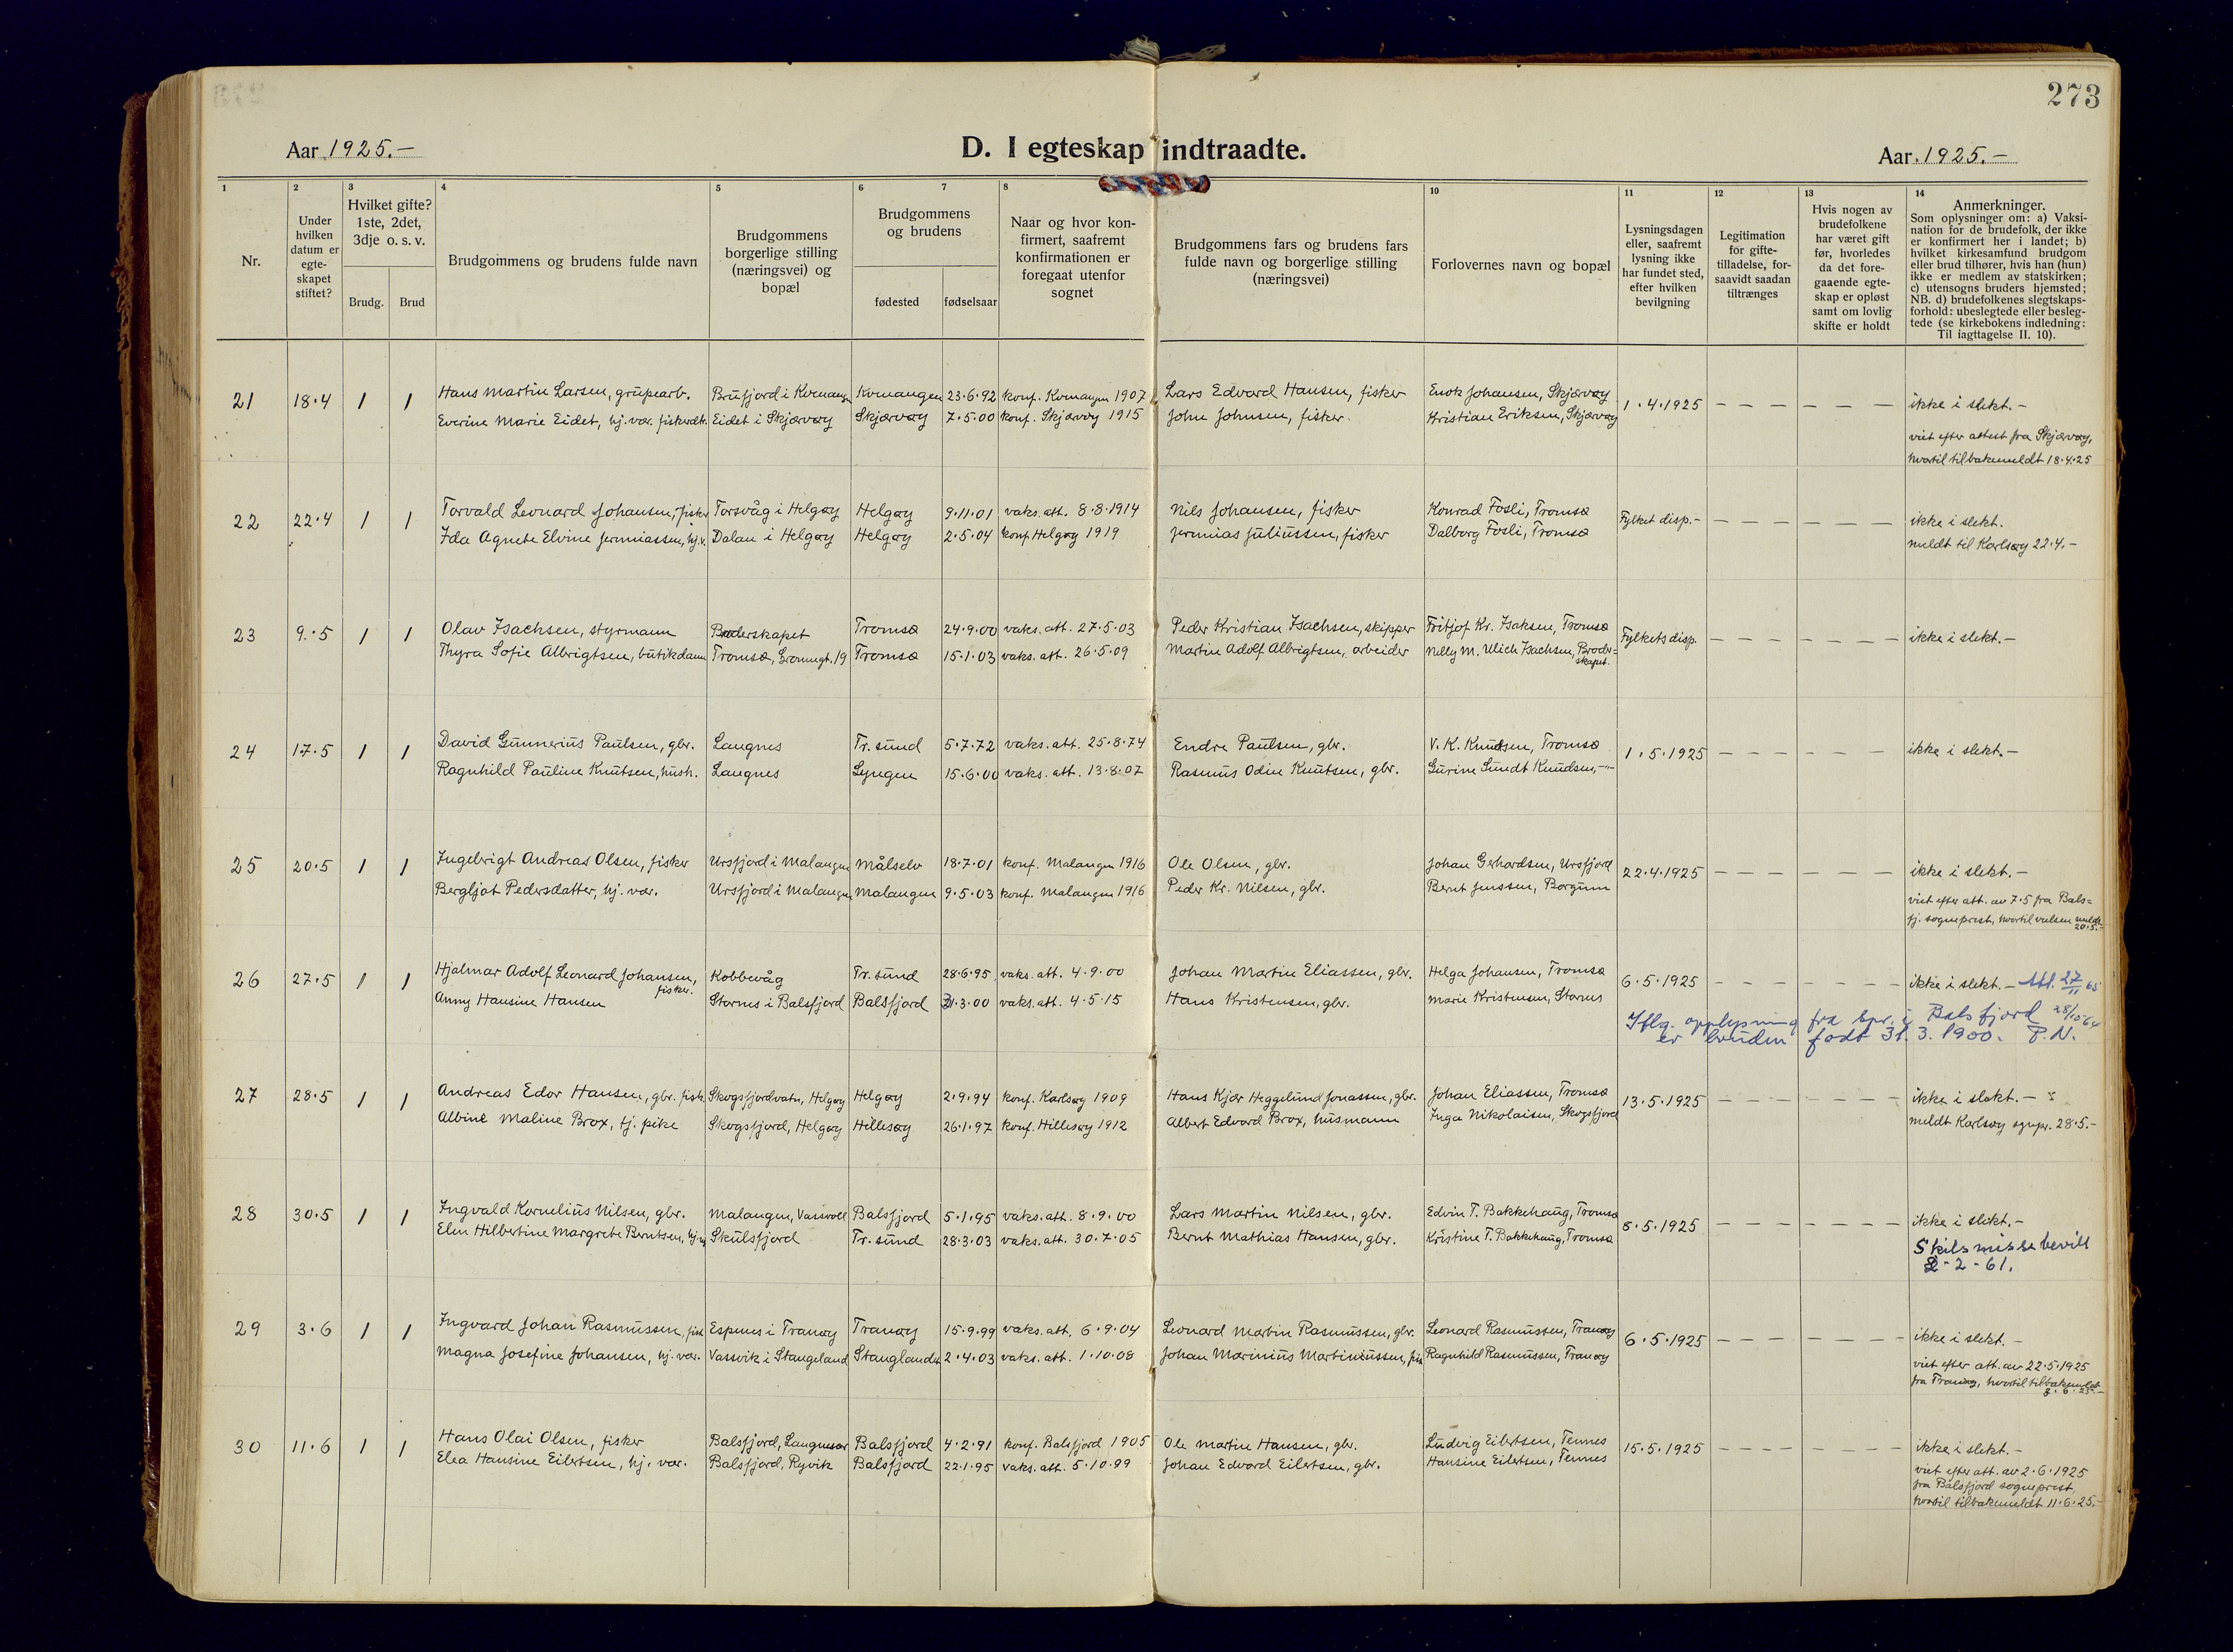 273
Aar 1925.-
D. I egteskap indtraadte.
Aar 1925.-
1 2 3 4 5 6 7 8 10 11 12 13 14
Nr.
Under hvilken datum er egte-skapet stiftet?
Hvilket gifte? 1ste, 2det, 3dje o. s. v.
Brudg. Brud
Brudgommens og brudens fulde navn
Brudgommens borgerlige stilling (næringsvei) og bopæl
Brudgommens og brudens
fødested fødselsaar
Naar og hvor kon-firmert, saafremt konfirmationen er foregaat utenfor sognet
Brudgommens fars og brudens fars fulde navn og borgerlige stilling (næringsvei)
Forlovernes navn og bopæl
Lysningsdagen eller, saafremt lysning ikke har fundet sted, efter hvilken bevilgning
Legitimation for gifte-tilladelse, for-saavidt saadan tiltrænges
Hvis nogen av brudefolkene har været gift før, hvorledes da det fore-gaaende egte-skap er opløst samt om lovlig skifte er holdt
Anmerkninger.
Som oplysninger om: a) Vaksi-nation for de brudefolk, der ikke er konfirmert her i landet; b) hvilket kirkesamfund brudgom eller brud tilhører, hvis han (hun) ikke er medlem av statskirken; c) utensogns bruders hjemsted; NB. d) brudefolkenes slegtskaps-forhold: ubeslegtede eller besleg-tede (se kirkebokens indledning: Til iagttagelse II. 10).
21 18.4 1 1 Hans Martin Larsen, grubearb. Brufjord i Kvænangen Kvænangen 23.6.92 konf. Kvænangen 1907 Lars Edvard Hansen, fisker Enok Johansen, Skjærvøy 1.4.1925 ikke i slekt.-
Everine Marie Eidet, hj.vær. fiskerdtr. Eidet i Skjærvøy Skjærvøy 7.5.00 konf. Skjærvøy 1915 John Johnsen, fisker Kristian Eriksen, Skjærvøy
viet efter attest fra Skjærvøy,
hvortil tilbakemeldt 18.4.25
22 22.4 1 1 Torvald Leonard Johansen, fisker Torsvåg i Helgøy Helgøy 9.11.01 vaks. att. 8.8.1914 Nils Johansen, fisker Konrad Fosli, Tromsø Fylket disp.- ikke i slekt.
Ida Agnete Elvine Jermiassen, hj.v. Dalan i Helgøy Helgøy 2.5.04 konf Helgøy 1919 Jermias Juliussen, fisker Dalborg Fosli, Tromsø
meldt til Karlsøy 22.4.-
23 9.5 1 1 Olav Isachsen, styrmann Broderskapet Tromsø 24.9.00 vaks. att. 27.5.03 Peder Kristian Isachsen, skipper Fritjof Kr. Isaksen, Tromsø Fylkets disp. ikke i slekt.-
Thyra Sofie Albrigtsen, butikdame Tromsø, Grønnegt. 19 Tromsø 15.1.03 vaks. att. 26.5.09 Martin Adolf Albrigtsen, arbeider Nelly M. Ulich Isachsen, Broder-
skapet.
24 17.5 1 1 David Gunnerius Paulsen, gbr. Langnes Tr.sund 5.7.72 vaks. att. 25.8.74 Endre Paulsen, gbr. V. K. Knudsen, Tromsø 1.5.1925 ikke i slekt.-
Ragnhild Pauline Knutsen, hush. Langnes Lyngen 15.6.00 vaks. att. 13.8.07 Rasmus Odin Knutsen, gbr. Gurine Sundt Knudsen, -"-
25 20.5 1 1 Ingebrigt Andreas Olsen, fisker Ursfjord i Malangen Målselv 18.7.01 konf. Malangen 1916 Ole Olsen, gbr. Johan Gerhardsen, Ursfjord 22.4.1925 ikke i slekt.-
Bergljot Pedersdatter, hj. vær. Ursfjord i Malangen Malangen 9.5.03 konf. Malangen 1916 Peder Kr. Nilsen, gbr. Bernt Jenssen, Borgunn
viet efter att. av 7.5 fra Bals-
fj. sogneprest, hvortil vielsen meldt
20.5.-
26 27.5 1 1 Hjalmar Adolf Leonard Johansen, fisker. Kobbevåg Tr.sund 28.6.95 vaks. att. 4.9.00 Johan Martin Eliassen, gbr. Helga Johansen, Tromsø 6.5.1925 ikke i slekt.- Att. 27/11 65
Anny Hansine Hansen Stornes i Balsfjord Balsfjord 31.3.00 vaks. att. 4.5.15 Hans Kristensen, gbr. Marie Kristensen, Stornes
Iflg. opplysning fra spr. i Balsfjord 28/10 64
er bruden født 31.3.1900. P.N.
27 28.5 1 1 Andreas Edor Hansen, gbr. fisk. Skogsfjordvatn, Helgøy Helgøy 2.9.94 konf. Karlsøy 1909 Hans Kjær Heggelund Jonassen, gbr. Johan Eliassen, Tromsø 13.5.1925 ikke i slekt.-
Albine Maline Brox, tj. pike Skogsfjord, Helgøy Hillesøy 26.1.97 konf. Hillesøy 1912 Albert Edvard Brox, husmann Inga Nikolaisen, Skogsfjord
meldt Karlsøy sognpr. 28.5.-
28 30.5 1 1 Ingvald Kornelius Nilsen, gbr. Malangen, Vassvoll Balsfjord 5.1.95 vaks. att. 8.9.00 Lars Martin Nilsen, gbr. Edvin T. Bakkehaug, Tromsø 8.5.1925 ikke i slekt.-
Elen Hilbertine Margrete Berntsen, hj.v. Skulsfjord Tr.sund 28.3.03 vaks. att. 30.7.05 Bernt Mathias Hansen, gbr. Kristine T. Bakkehaug, Tromsø
Skilsmisse bevill
2-2-61.
29 3.6 1 1 Ingvard Johan Rasmussen, fisk. Espenes i Tranøy Tranøy 15.9.99 vaks. att. 6.9.04 Leonard Martin Rasmussen, gbr. Leonard Rasmussen, Tranøy 6.5.1925 ikke i slekt.-
Magna Josefine Johansen, hj. vær. Vassvik i Stangeland Stanglands 2.4.03 vaks. att. 1.10.08 Johan Marinius Martiniussen, fisk Ragnhild Rasmussen, Tranøy
viet efter att. av 22.5.1925
fra Tranøy, hvortil tilbakemeldt
3.6.25.-
30 11.6 1 1 Hans Olai Olsen, fisker Balsfjord, Laugnesør Balsfjord 4.2.91 konf. Balsfjord 1905 Ole Martin Hansen, gbr. Ludvig Eilertsen, Tennes 15.5.1925 ikke i slekt.-
Elea Hansine Eilertsen, hj. vær. Balsfjord, Ryvik Balsfjord 22.1.95 vaks. att. 5.10.99 Johan Edvard Eilertsen, gbr. Hansine Eilertsen, Tennes
viet efter att. av 2.6.1925
fra Balsfjord sogneprest,
hvortil tilbakemeldt 11.6.25.-